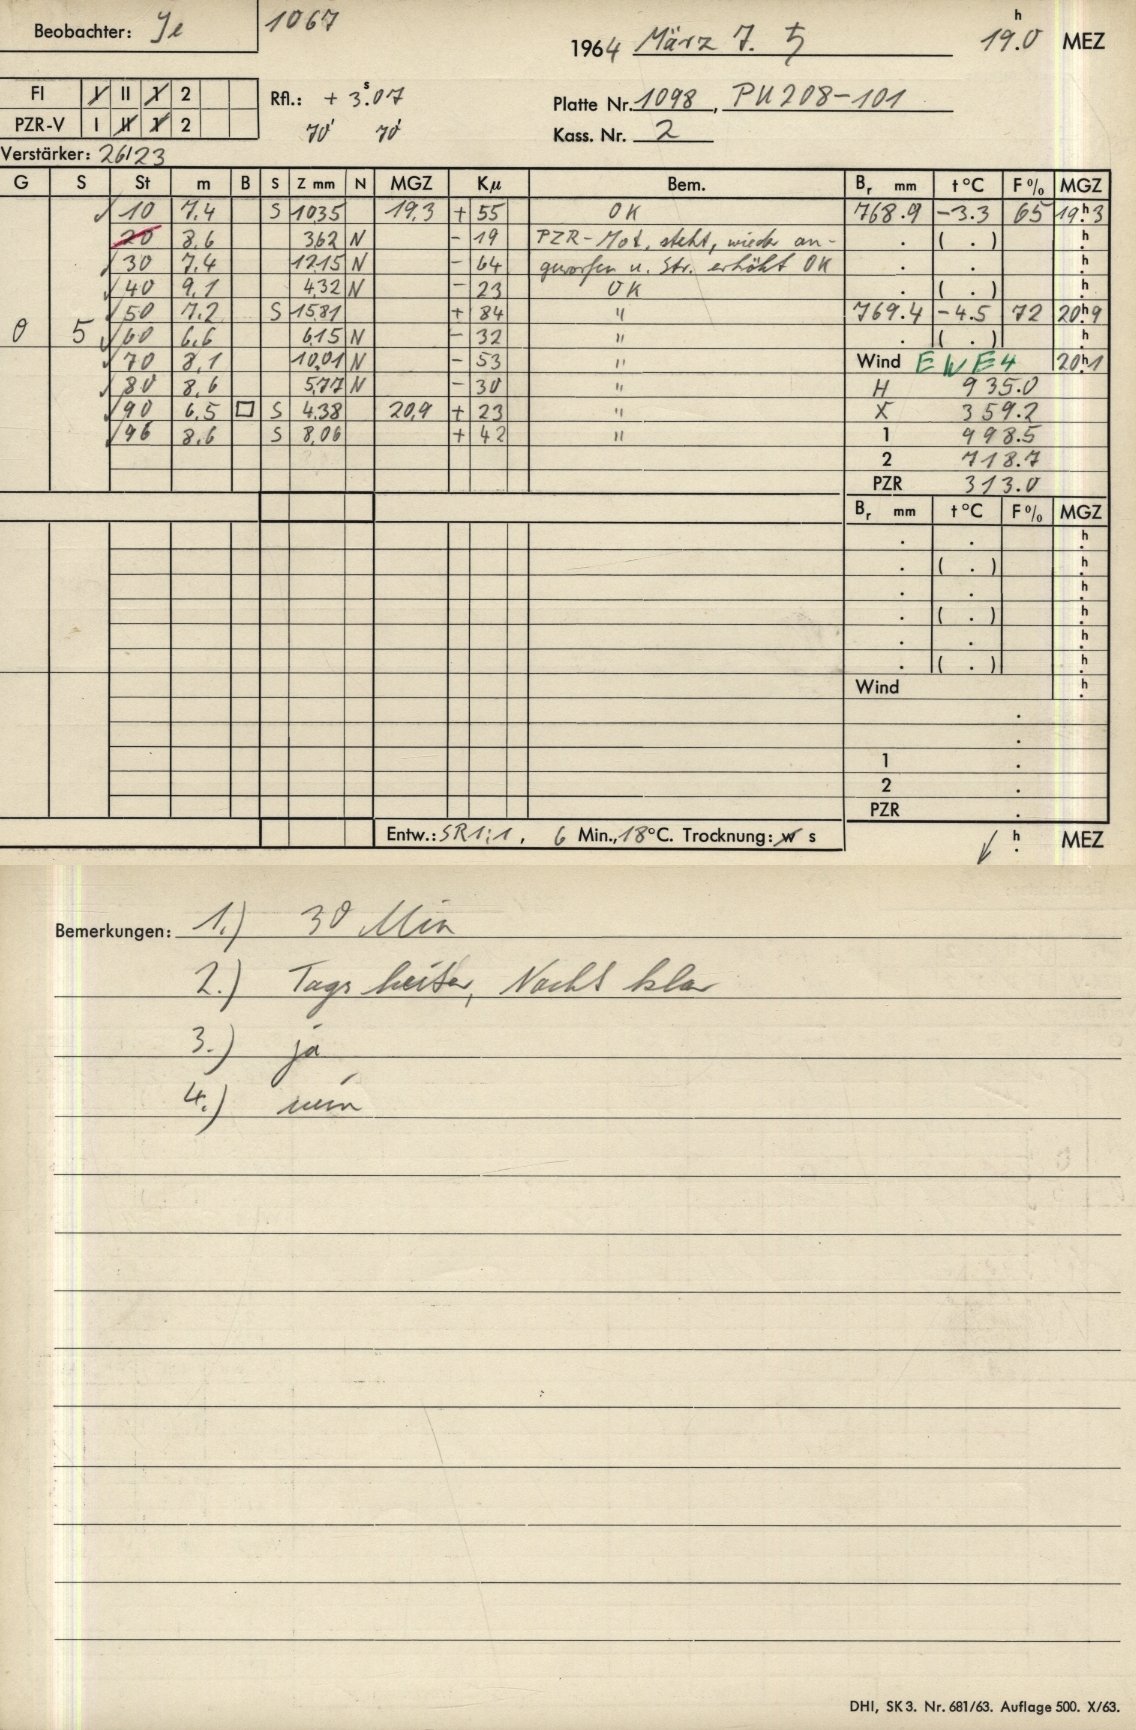 Beobachter: Je 1067
1964 März 7. ♄ 19.ʰ0 MEZ
FI I II 1 2
PZR-V I II 1 2
Rfl.: + 3.ˢ07
70' 70'
Platte Nr. 1098, PU208-101
Kass. Nr. 2
Verstärker: 26/23
G S St m B S Z mm N MGZ Kμ Bem. Bᵣ mm t °C F % MGZ
✓ 10 7,4 S 1035 19,3 + 55 OK 768.9 -3.3 65 19ʰ3
20 8,6 362 N - 19 PZR-Mot. steht, wieder an- . ( . ) ʰ.
✓ 30 7,4 1215 N - 64 geworfen u. Str. erhöht OK . . ʰ.
✓ 40 9,1 432 N - 23 OK . ( . ) ʰ.
✓ 50 7,2 S 1581 + 84 " 769.4 -4.5 72 20ʰ9
0 5 ✓ 60 6,6 615 N - 32 " . ( . ) ʰ.
✓ 70 8,1 10,01 N - 53 " Wind E W E 4 20ʰ1
✓ 80 8,6 577 N - 30 " H 935.0
✓ 90 6,5 □ S 4,38 20,9 + 23 " X 359.2
✓ 96 8,6 S 8,06 + 42 " 1 998.5
2 718.7
PZR 313.0
Bᵣ mm t °C F % MGZ
. . ʰ.
. ( . ) ʰ.
. . ʰ.
. ( . ) ʰ.
. . ʰ.
. ( . ) ʰ.
Wind ʰ.
.
.
1 .
2 .
PZR .
Entw.: SR1:1, 6 Min., 18°C. Trocknung: w s
✓ ʰ. MEZ
Bemerkungen: 1.) 30 Min
2.) Tags heiter, Nacht klar
3.) ja
4.) nein
DHI, SK 3. Nr. 681/63. Auflage 500. X/63.